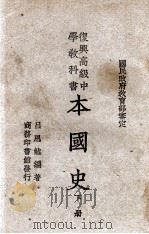 國民政府教育部審定
復興高級中
學教科書
本國史
下册
呂思勉編著
商務印書館發行